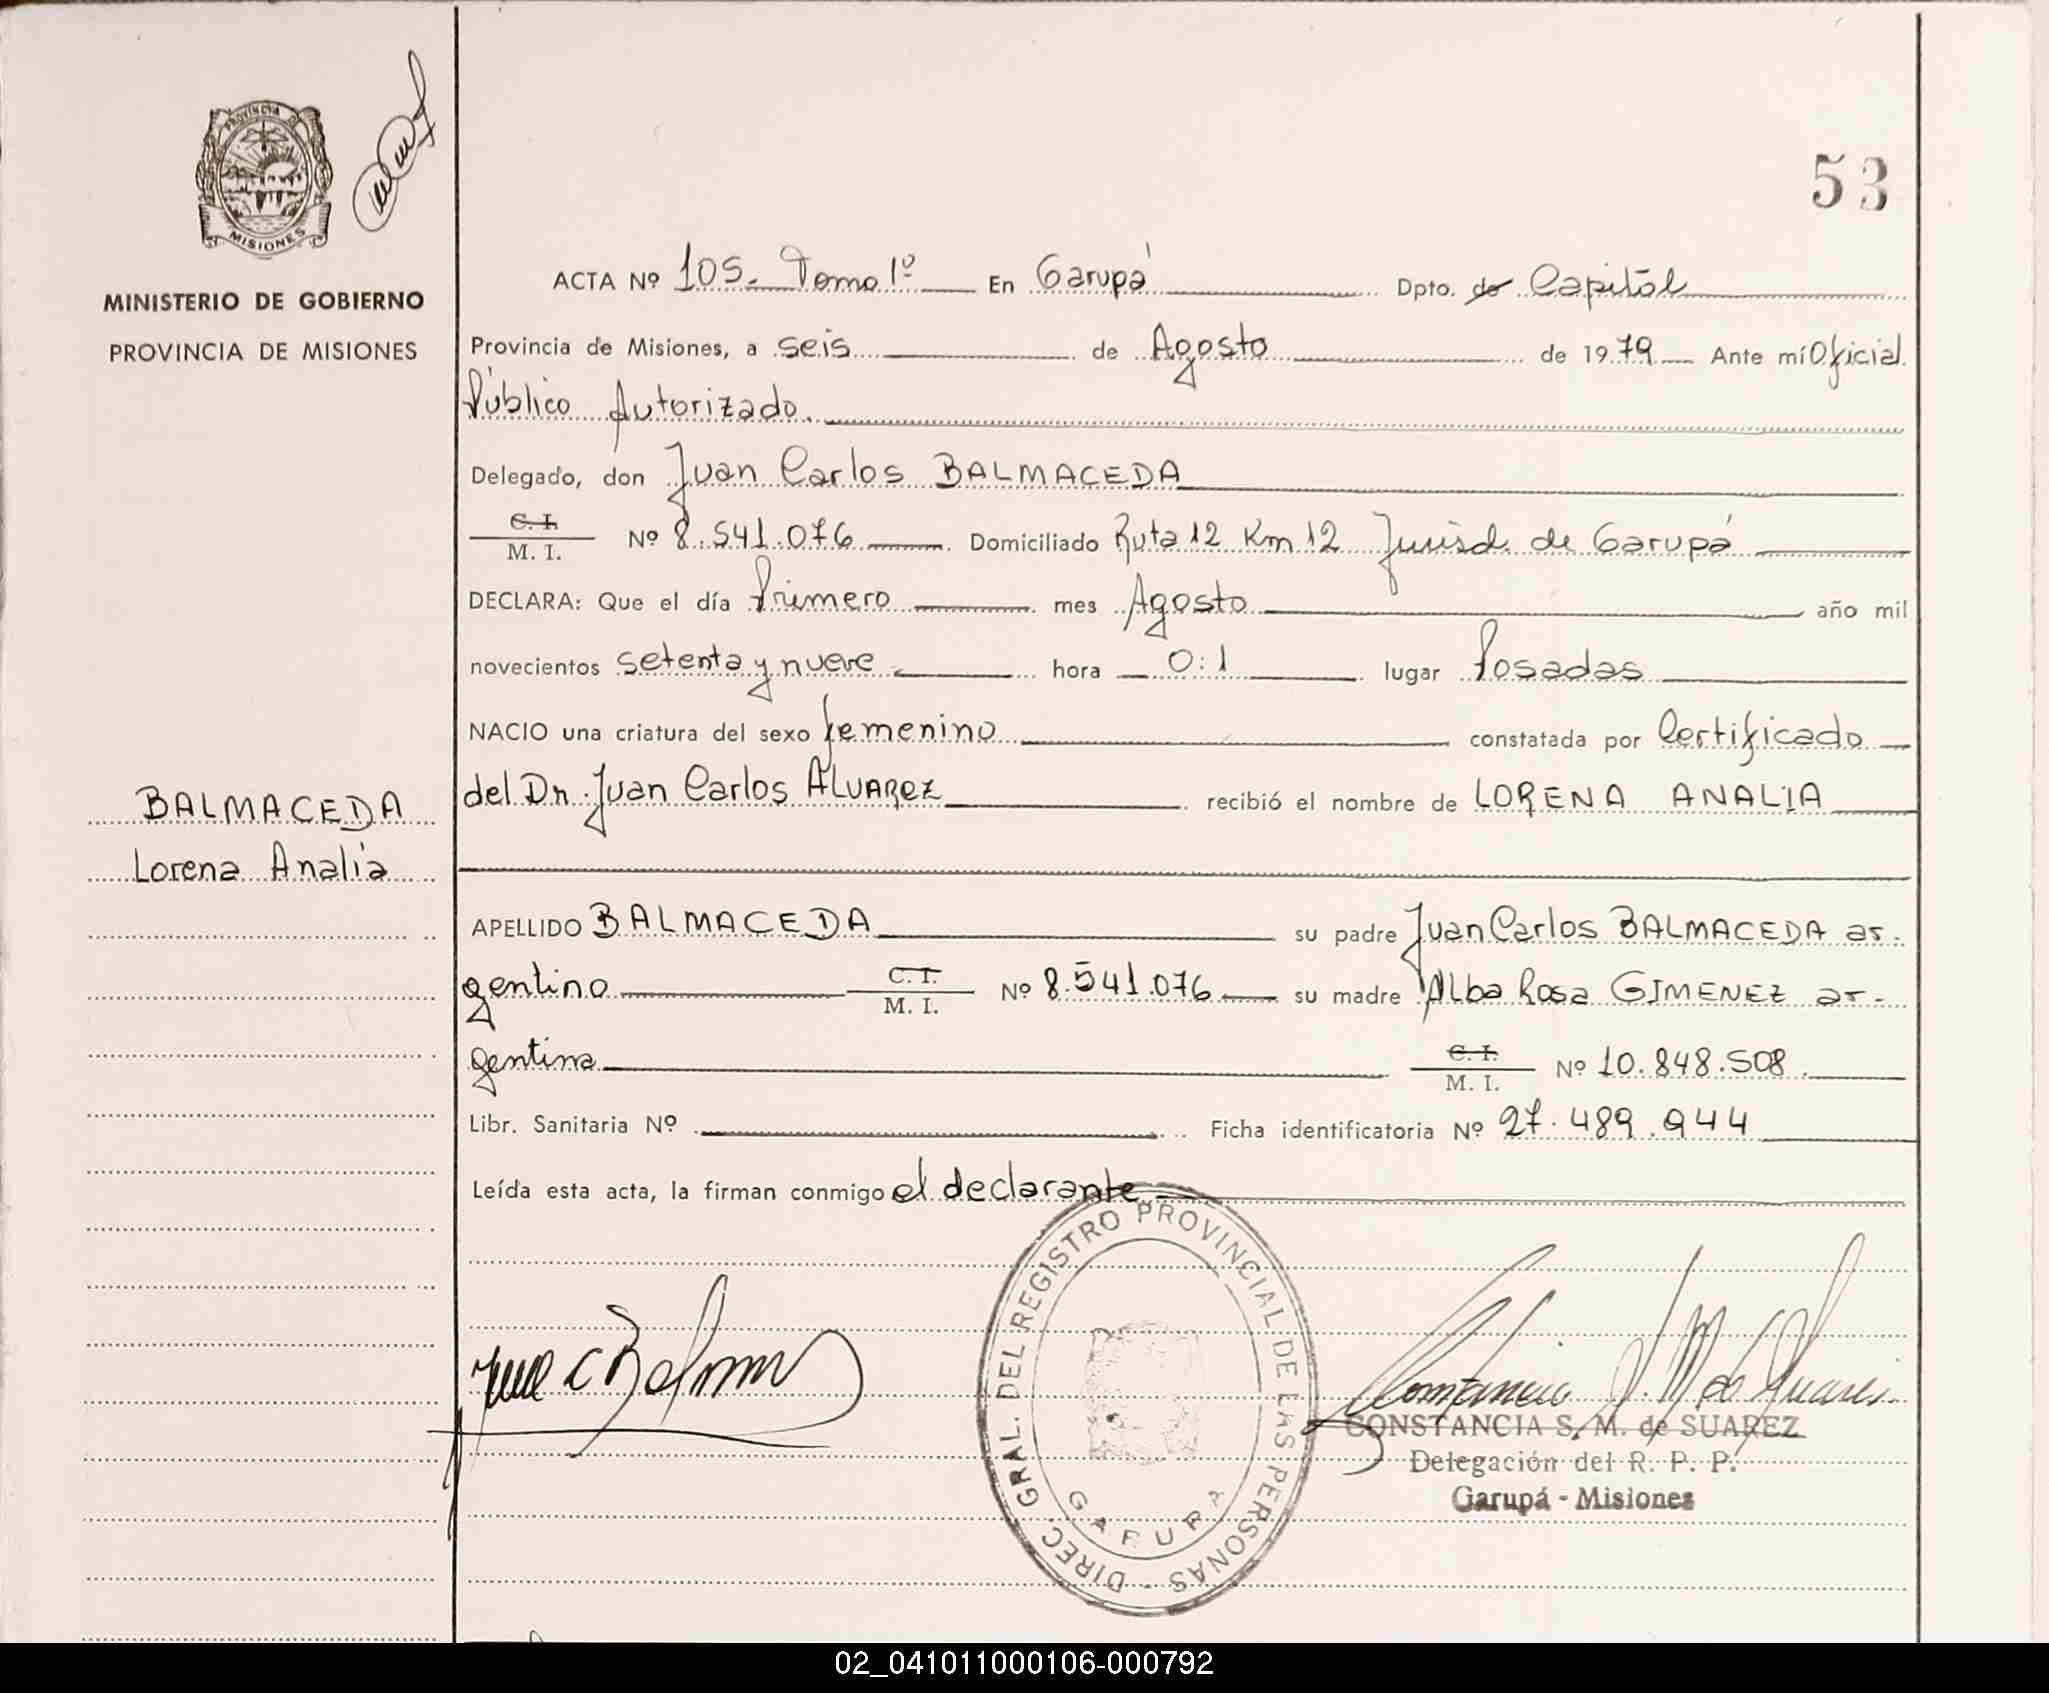 PROVINCIA DE
MISIONES
MINISTERIO DE GOBIERNO
PROVINCIA DE MISIONES
53
ACTA Nº 105. Tomo 1º En Garupá Dpto. de Capital
Provincia de Misiones, a seis de Agosto de 1979 Ante mí Oficial
Público Autorizado.
Delegado, don Juan Carlos BALMACEDA
C. I.
M. I. Nº 8.541.076 Domiciliado Ruta 12 Km 12 Jurisd. de Garupá
DECLARA: Que el día Primero mes Agosto año mil
novecientos setenta y nueve hora 0:1 lugar Posadas
NACIO una criatura del sexo femenino constatada por Certificado
del Dr. Juan Carlos ALVAREZ recibió el nombre de LORENA ANALIA
BALMACEDA
Lorena Analía
APELLIDO BALMACEDA su padre Juan Carlos BALMACEDA ar-
gentino C. I.
M. I. Nº 8.541.076 su madre Alba Rosa GIMENEZ ar-
gentina C. I.
M. I. Nº 10.848.508.
Libr. Sanitaria Nº Ficha identificatoria Nº 27.489.944
Leída esta acta, la firman conmigo el declarante
DIREC. GRAL. DEL REGISTRO PROVINCIAL DE LAS PERSONAS -
GARUPA
CONSTANCIA S. M. de SUAREZ
Delegación del R. P. P.
Garupá - Misiones
02_041011000106-000792